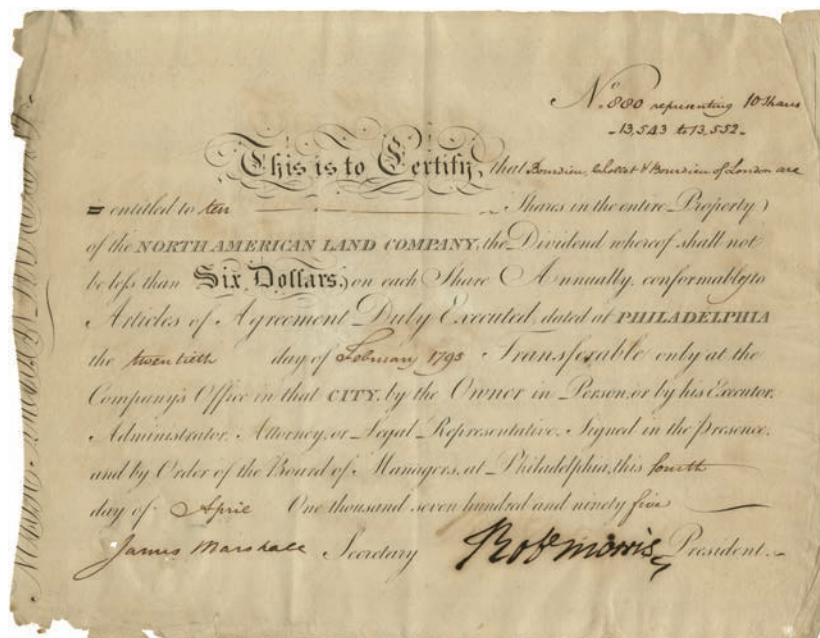 No. 880 representing 10 Shares
- 13,543 to 13,552 -
This is to Certify, that Bourdieu, Chollet & Bourdieu of London are
entitled to ten Shares in the entire Property
of the NORTH AMERICAN LAND COMPANY, the Dividend whereof shall not
be less than Six Dollars, on each Share Annually, conformably to
Articles of Agreement Duly Executed, dated at PHILADELPHIA
the twentieth day of February 1795 Transferable only at the
Company's Office in that CITY, by the Owner in Person, or by his Executor,
Administrator, Attorney, or Legal Representative. Signed in the Presence,
and by Order of the Board of Managers, at Philadelphia, this fourth
day of April One thousand seven hundred and ninety five
James Marshall Secretary Robt Morris President.